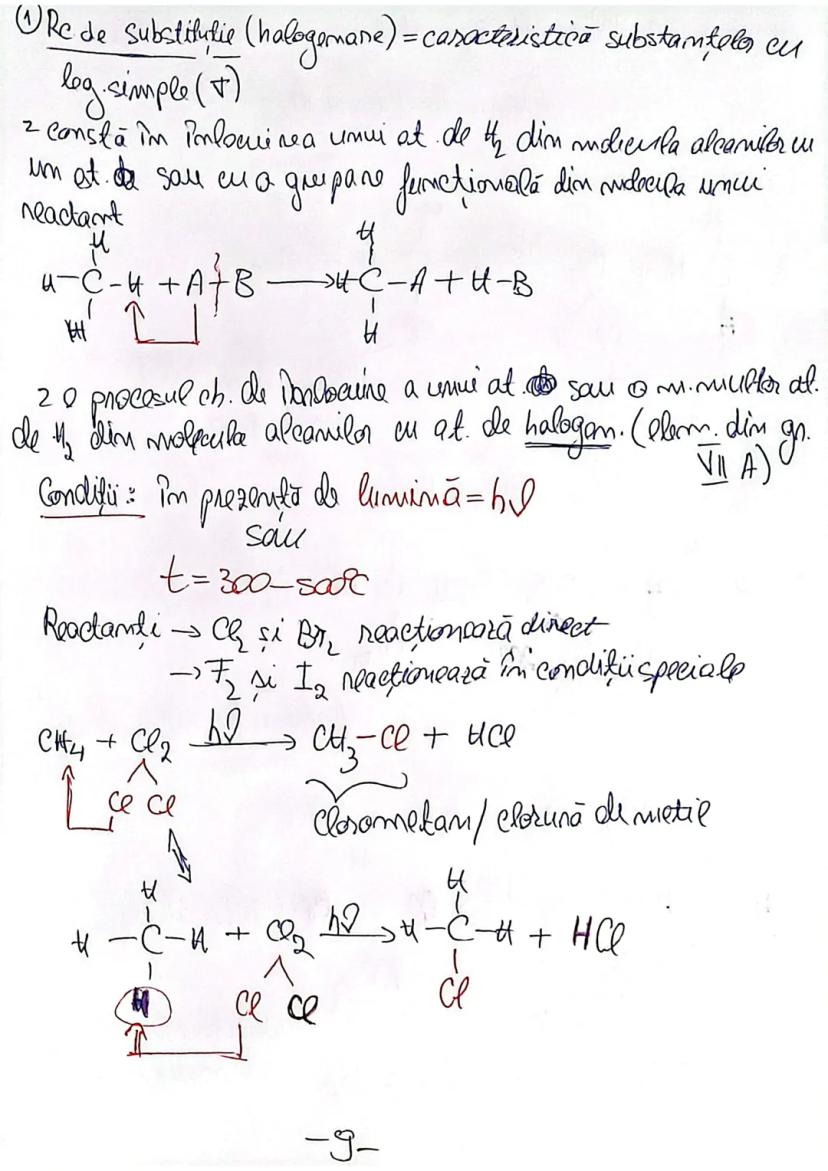 ① Rc de substituție (halogenare) = caracteristică substanțelor cu
leg. simple (σ)
2 constă în înlocuirea unui at. de H₂ din molecula alcanilor cu
un at. sau cu o grupare funcțională din molecula unui
reactant
H H
H-C-H + A+B ⟶ H-C-A + H-B
H H
2 o procesul ch. de înlocuire a unui at. sau o m. multor at.
de H₂ din molecula alcanilor cu at. de halogen. (elem. din gr.
VII A)
Condiții: în prezență de lumină = hν
sau
t = 300-500°C
Reactanți → Cl₂ și Br₂ reacționează direct
→ F₂ și I₂ reacționează în condiții speciale
CH₄ + Cl₂ hν⟶ CH₃-Cl + HCl
Cl Cl
Clorometan / clorură de metil
H H
H-C-H + Cl₂ hν⟶ H-C-H + HCl
H Cl Cl Cl
-9-